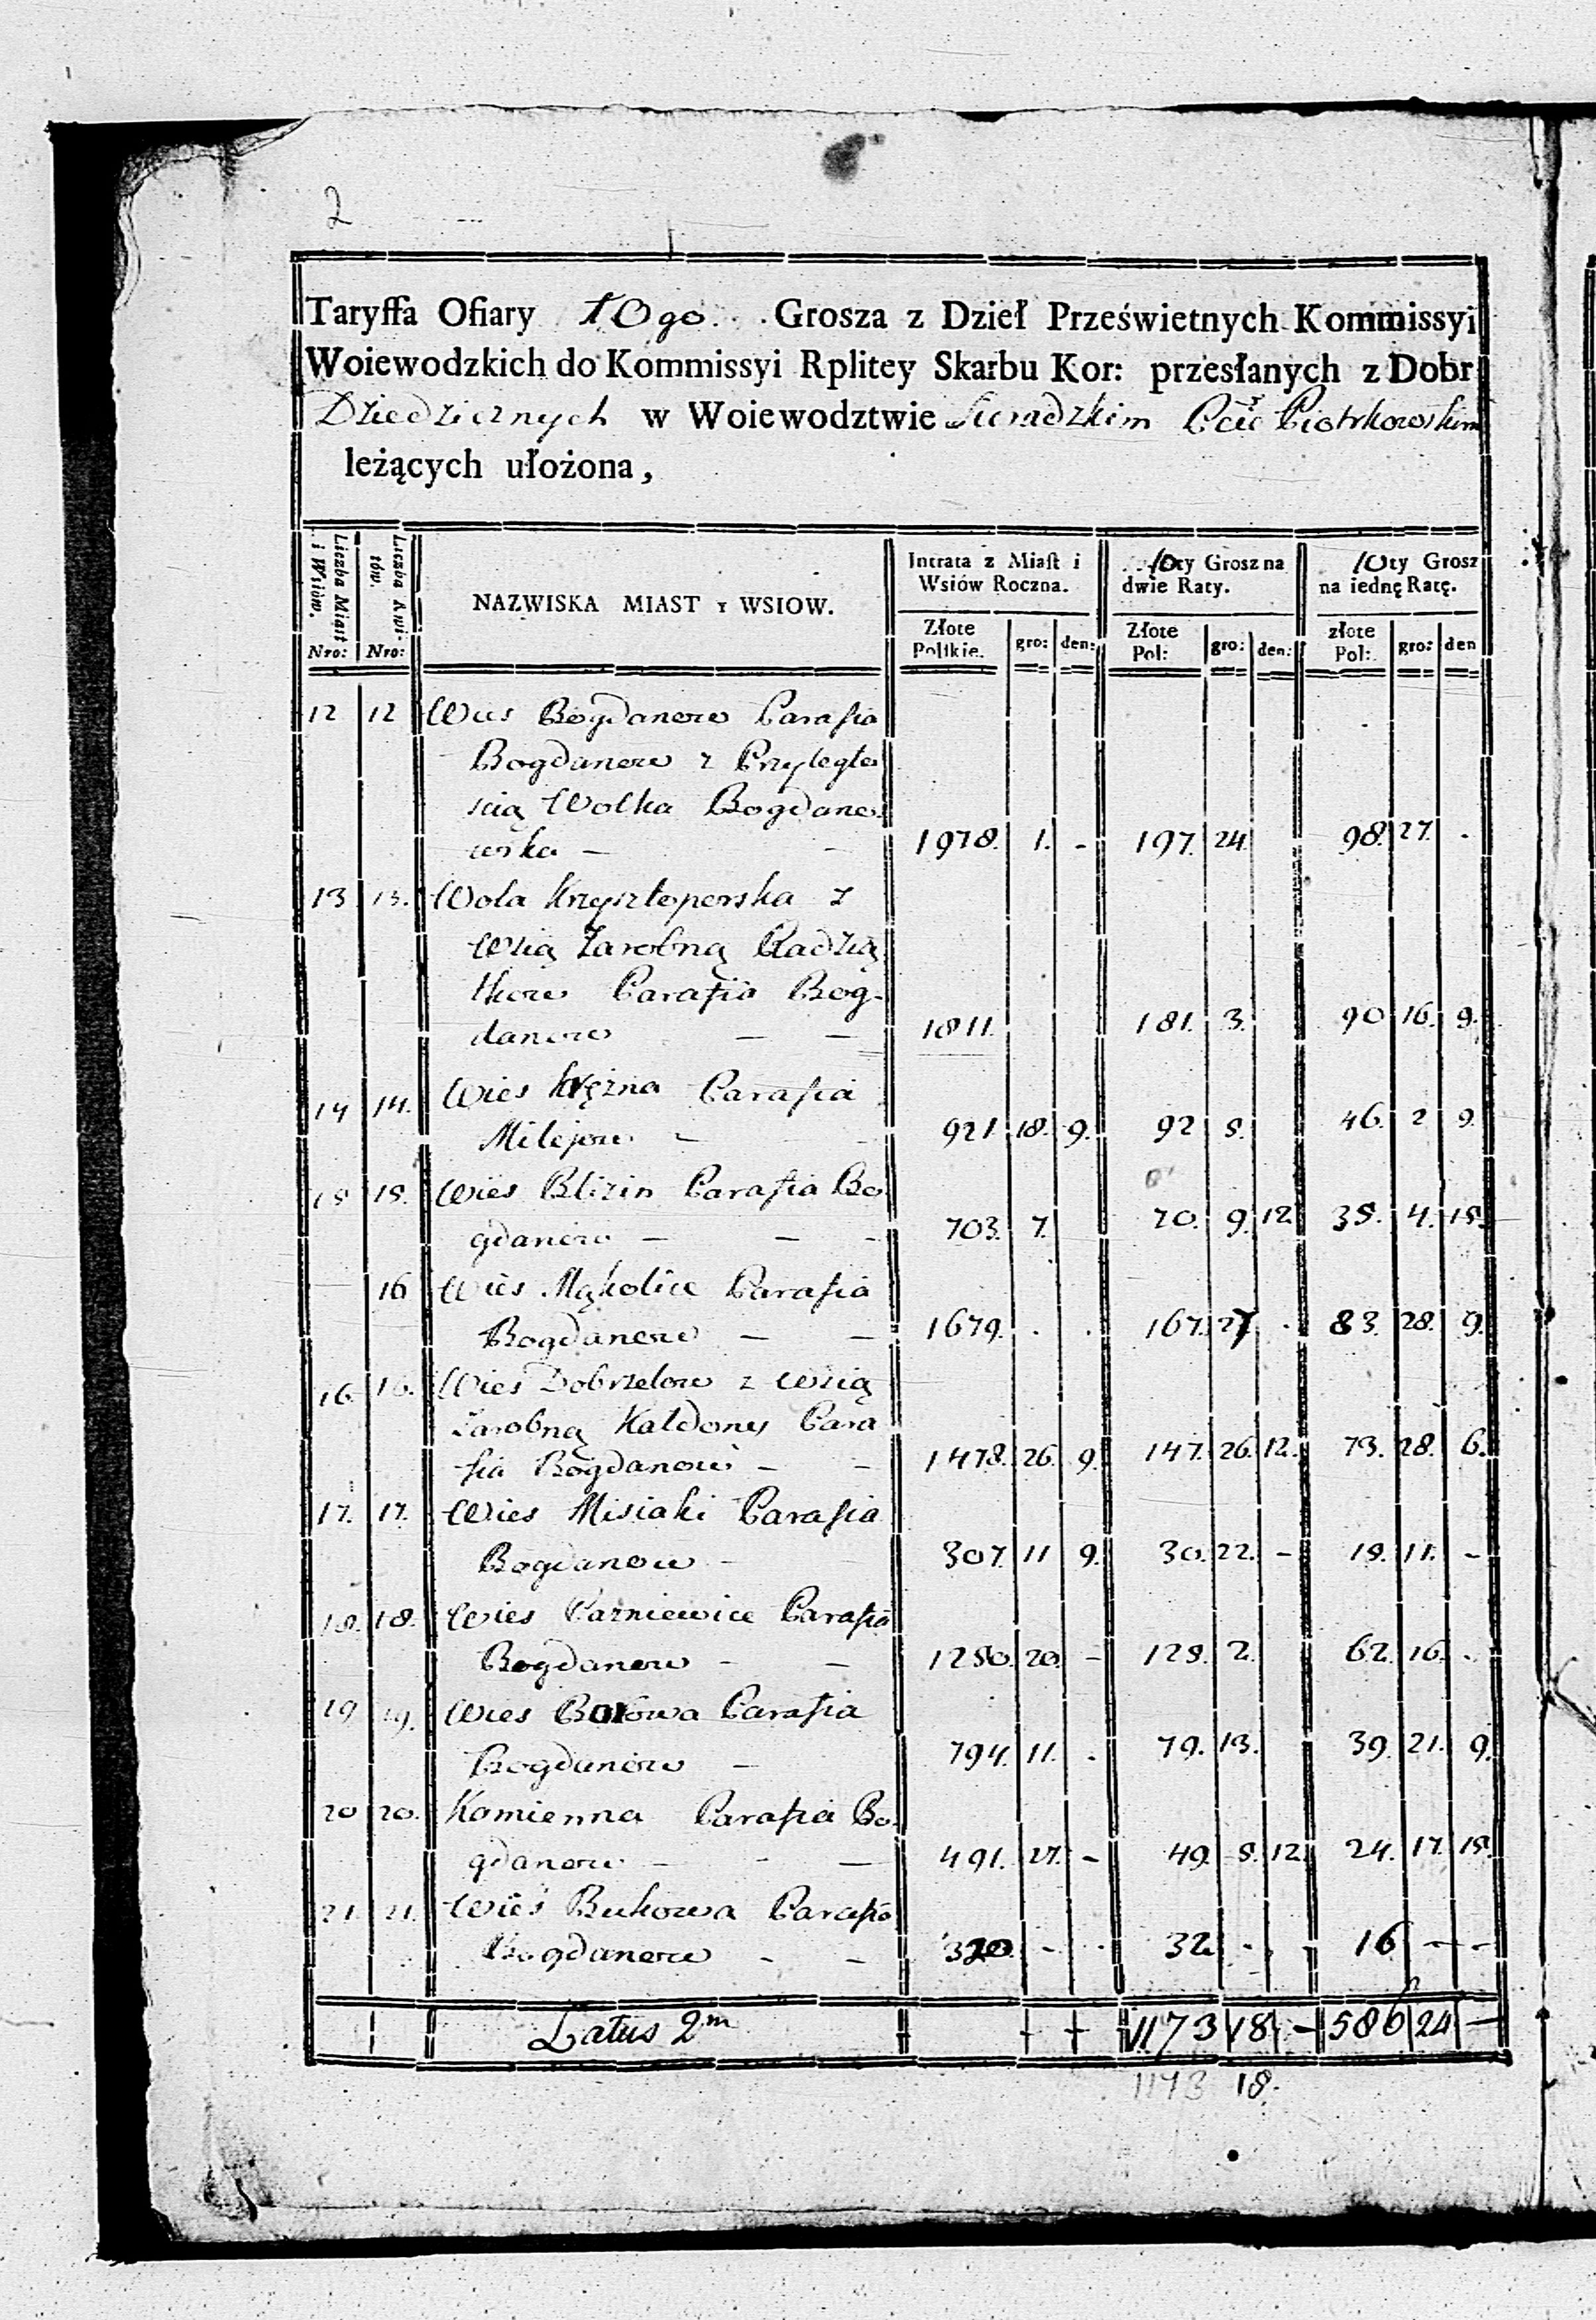 2
Taryffa Ofiary 10go. Grosza z Dzieł Prześwietnych Kommissyi
Woiewodzkich do Kommissyi Rplitey Skarbu Kor: przesłanych z Dobr
Dziedzicznych w Woiewodztwie Sieradzkim Pcie Piotrkowskim
leżących ułożona,
Liczba Miast i Wsiów. Nro: Liczba Kwitów. Nro: NAZWISKA MIAST Y WSIOW. Intrata z Miast i Wsiów Roczna. 10ty Grosz na dwie Raty. 10ty Grosz na iednę Ratę.
Złote Polskie. gro: den: Złote Pol: gro: den: złote Pol: gro: den
12 12 Wies Bogdanow Parafia
Bogdanow z Przyległo
scią Wolka Bogdano
wska — — 1978. 1. - 197. 24. 98. 27. -
13 13. Wola Krzysztoporska z
Wsią Zarobną Radzią
tkow Parafia Bog-
danow — — 1811. 181. 3. 90 16. 9.
14 14. Wies Krężna Parafia
Milejow — 921. 18. 9. 92 5. 46. 2 9.
15 15. Wies Blizin Parafia Bo
gdanow — — - 703. 7. 70. 9. 12 35. 4. 15.
16 Wies Mąkolice Parafia
Bogdanow — — 1679. . . 167. 27 . 83. 28. 9.
16. 16. Wies Dobrzelow z wsią
Zarobną Kałdony Para
fia Bogdanow — — 1478. 26. 9. 147. 26. 12. 73. 28. 6.
17. 17. Wies Misiaki Parafia
Bogdanow - 307. 11 9. 30. 22. - 15. 11. -
18. 18. Wies Parniewice Parafia
Bogdanow - — 1250. 20. - 125. 2. 62. 16. -
19 19. Wies Borowa Parafia
Bogdanow — 794. 11. . 79. 13. 39. 21. 9.
20 20. Kamienna Parafia Bo.
gdanow — - — 491. 27. - 49. 5. 12. 24. 17. 15.
21. 21. Wies Bukowa Parafia
Bogdanow - — 320. - . 32. - . 16 — -
Latus 2m 1173 18 - 586 24 —
1173 18.